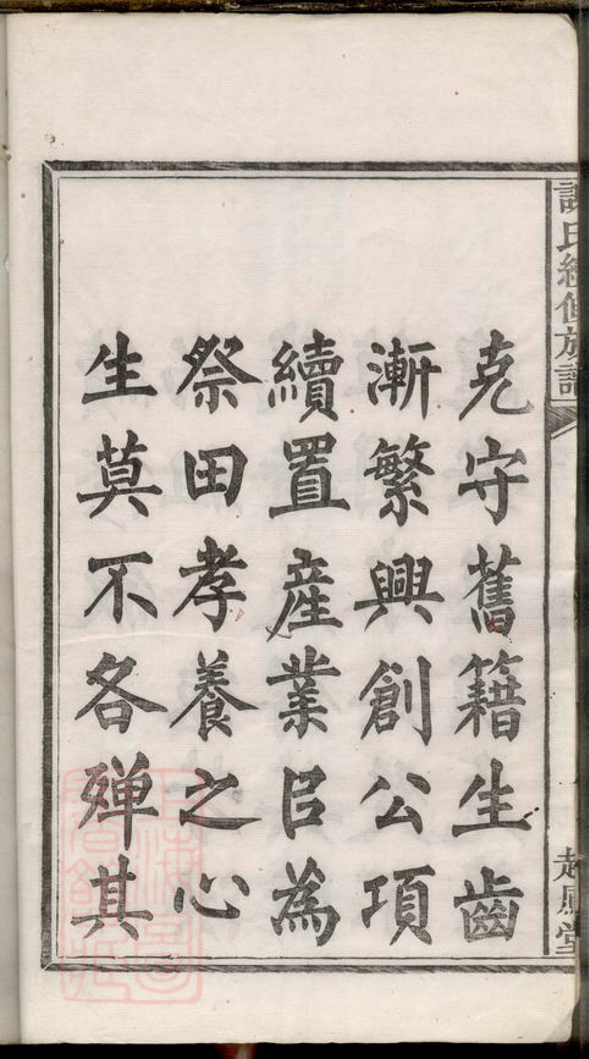 氏續修族譜
起鳳堂
克守舊籍生齒
漸繁興創公項
續置產業㠯為
祭田孝養之心
生莫不各殫其
上海圖
書館藏